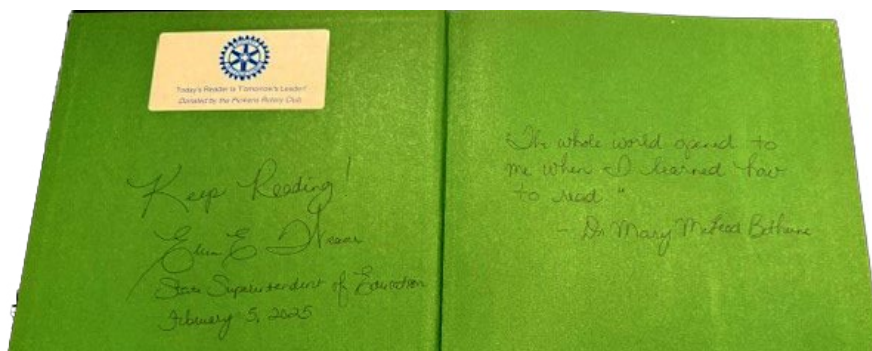 Today's Reader is Tomorrow's Leader!
Donated by the Pickens Rotary Club
Keep Reading!
Ellen E
State Superintendent of Education
February 5, 2025
"The whole world opened to
me when I learned how
to read"
- Dr Mary McLeod Bethune